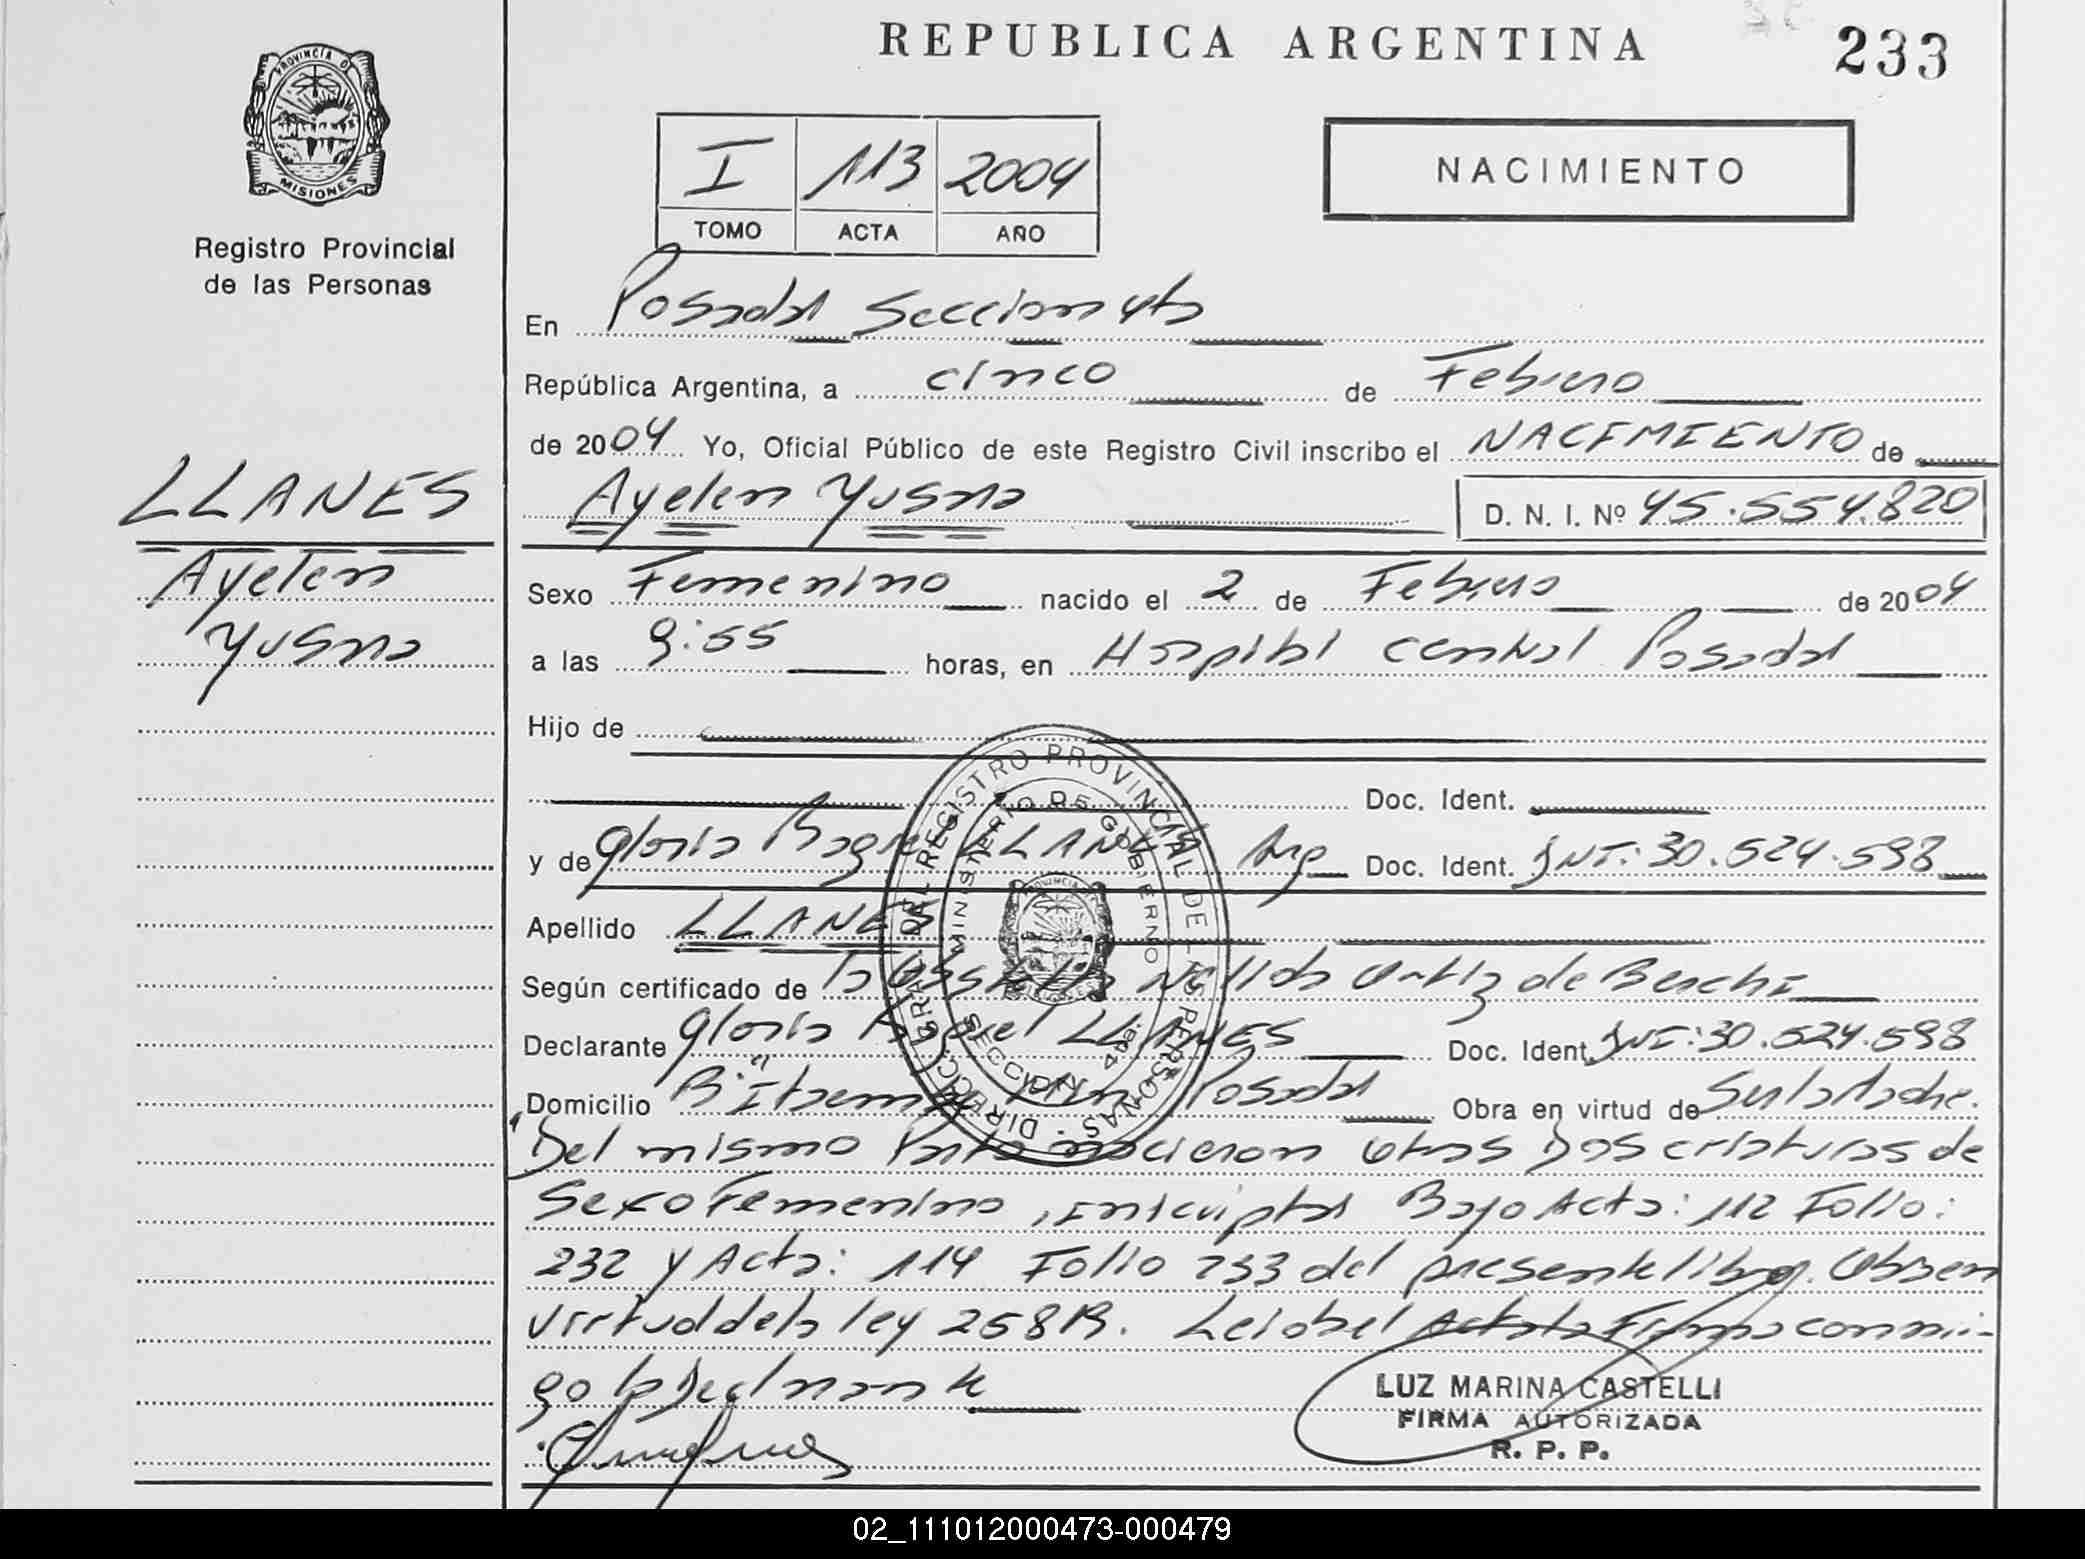 REPUBLICA ARGENTINA 233
PROVINCIA DE
MISIONES
Registro Provincial
de las Personas
I 113 2004
TOMO ACTA AÑO
NACIMIENTO
En Posadas Seccion 4ta
República Argentina, a cinco de Febrero
de 2004 Yo, Oficial Público de este Registro Civil inscribo el NACIMIENTO de
LLANES
Ayelen Yusara D. N. I. Nº 45.554.820
Ayelen
Yusara
Sexo Femenino nacido el 2 de Febrero de 2004
a las 9:55 horas, en Hospital Central Posadas
Hijo de
Doc. Ident.
y de Gloria Raquel LLANES Arg Doc. Ident. DNI: 30.524.598
Apellido LLANES
Según certificado de la Nellida Ortiz de
Declarante Gloria Raquel LLANES Doc. Ident. DNI: 30.524.598
Domicilio Bº Itaembé Posadas Obra en virtud de Ser la Madre.
Del mismo Parto nacieron otras Dos criaturas de
Sexo Femenino, Inscriptas Bajo Acta: 112 Folio:
232 y Acta: 114 Folio 233 del presente libro. Obra en
virtud de la ley 2588. Leida el Acta la Firma conmi-
go la Declarante
DIRECC. GRAL. DEL REGISTRO PROVINCIAL DE LAS PERSONAS
MINISTERIO DE GOBIERNO
SECCION 4ta.
LUZ MARINA CASTELLI
FIRMA AUTORIZADA
R. P. P.
02_111012000473-000479